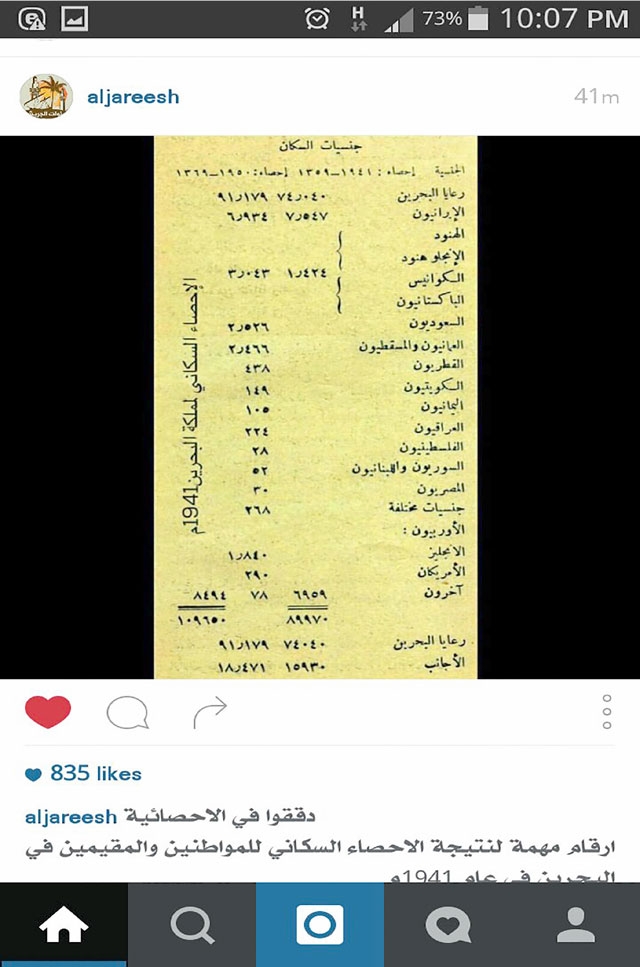 73% 10:07 PM
aljareesh 41m
جنسيات السكان
الجنسية إحصاء: ١٩٤١–١٣٥٩ إحصاء: ١٩٥٠–١٣٦٩
رعايا البحرين ٧٤٫٠٤٠ ٩١٫١٧٩
الإيرانيون ٧٫٥٤٧ ٦٫٩٣٤
الهنود
الإنجلو هنود
الكوانيس ١٫٤٢٤ ٣٫٠٤٣
الباكستانيون
السعوديون ٢٫٥٢٦
العمانيون والمسقطيون ٢٫٤٦٦
القطريون ٤٣٨
الكويتيون ١٤٩
اليمانيون ١٠٥
العراقيون ٢٢٤
الفلسطينيون ٢٨
السوريون واللبنانيون ٥٢
المصريون ٣٠
جنسيات مختلفة ٢٦٨
الأوربيون :
الانجليز ١٫٨٤٠
الأمريكان ٢٩٠
آخرون ٦٩٥٩ ٧٨ ٨٤٩٤
٨٩٩٧٠ ١٠٩٦٥٠
رعايا البحرين ٧٤٠٤٠ ٩١٫١٧٩
الأجانب ١٥٩٣٠ ١٨٫٤٧١
الإحصاء السكاني لمملكة البحرين 1941م
835 likes
aljareesh دققوا في الاحصائية
ارقام مهمة لنتيجة الاحصاء السكاني للمواطنين والمقيمين في
البحرين في عام 1941م